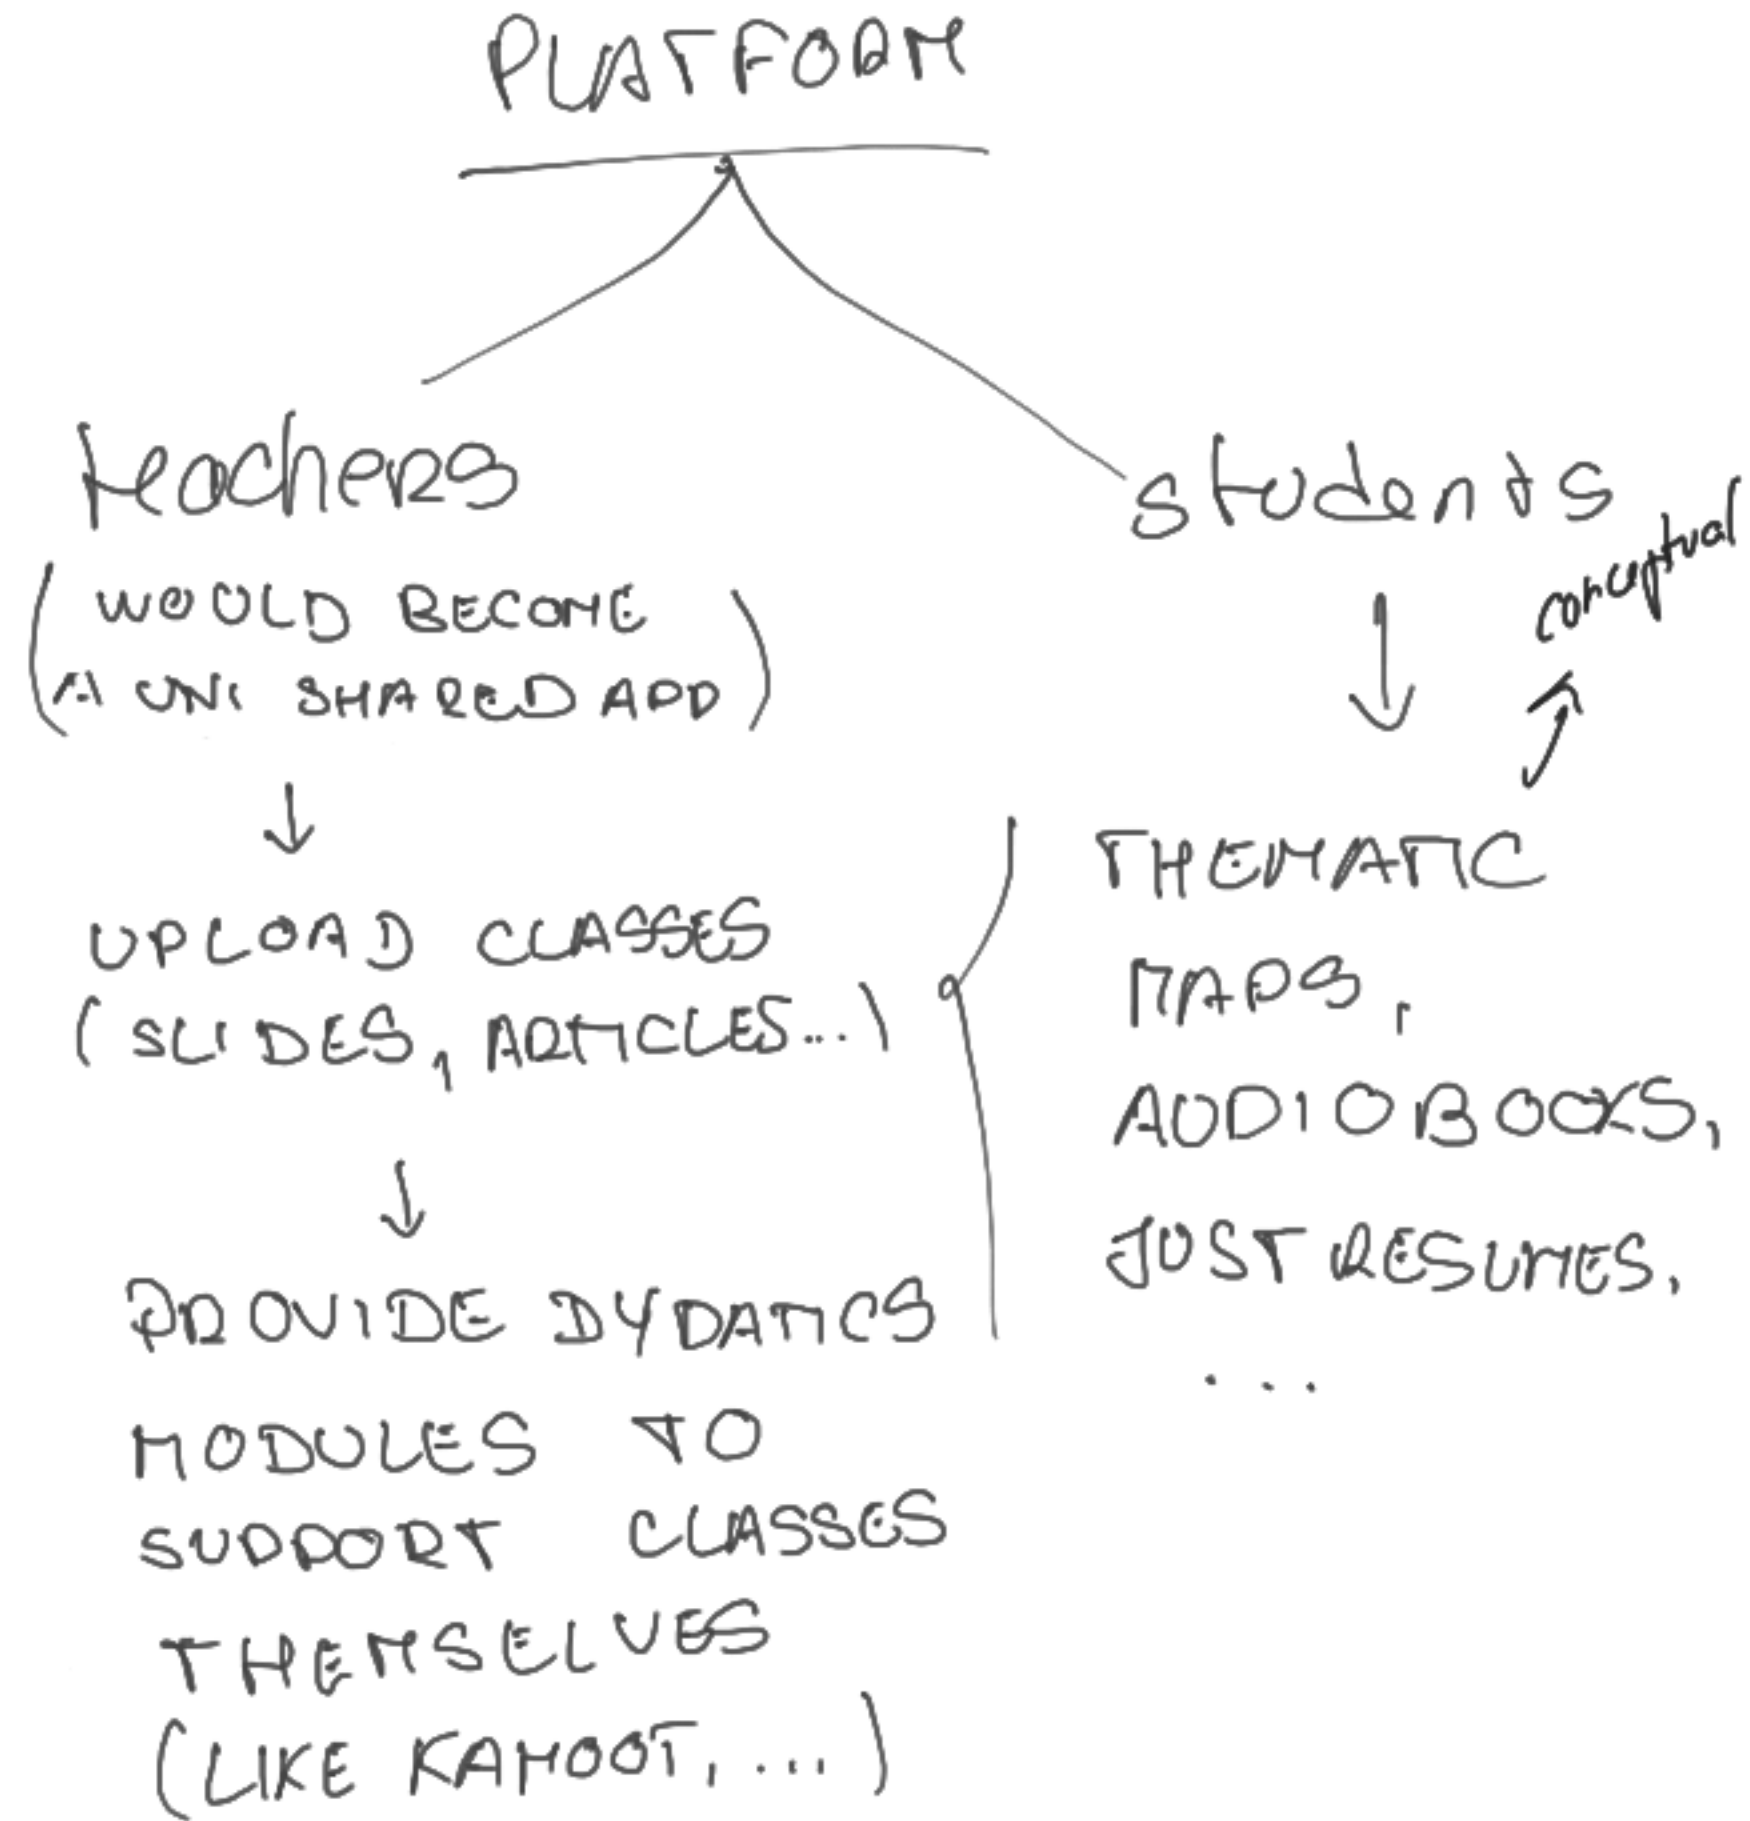 PLATFORM
teachers
(WOULD BECOME
A UNI SHARED APP)
UPLOAD CLASSES
(SLIDES, ARTICLES...)
PROVIDE DYDATICS
MODULES TO
SUPPORT CLASSES
THEMSELVES
(LIKE KAHOOT, ...)
students
conceptual
THEMATIC
MAPS,
AUDIOBOOKS,
JUST RESUMES,
...